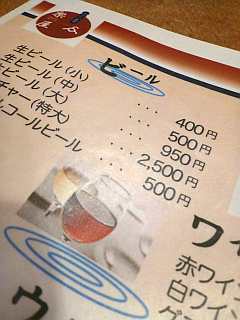 ビール
生ビール(小) ... 400円
生ビール(中) ... 500円
ビール(大) ... 950円
チャー(特大) ... 2,500円
ルコールビール 500円
ワイ
赤ワイ
白ワイン
グ
ウ